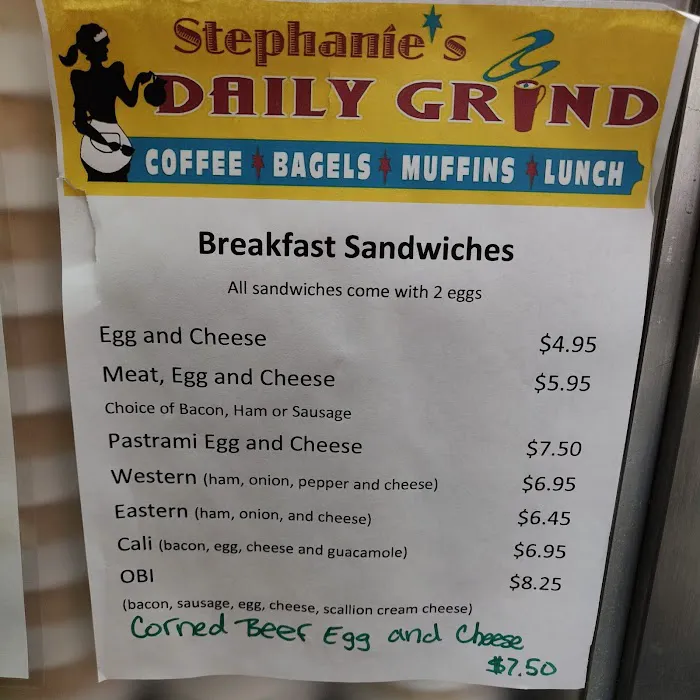 Stephanie's
DAILY GRIND
COFFEE BAGELS MUFFINS LUNCH
Breakfast Sandwiches
All sandwiches come with 2 eggs
Egg and Cheese $4.95
Meat, Egg and Cheese $5.95
Choice of Bacon, Ham or Sausage
Pastrami Egg and Cheese $7.50
Western (ham, onion, pepper and cheese) $6.95
Eastern (ham, onion, and cheese) $6.45
Cali (bacon, egg, cheese and guacamole) $6.95
OBI $8.25
(bacon, sausage, egg, cheese, scallion cream cheese)
Corned Beer Egg and Cheese
$7.50